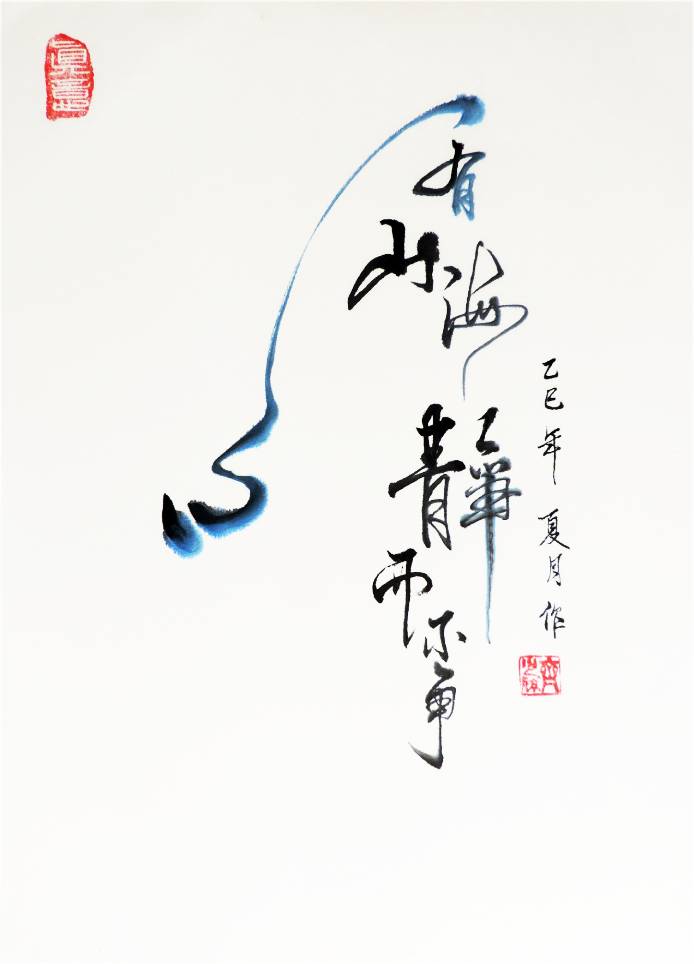 心有山海
靜而不爭
乙巳年 夏月作